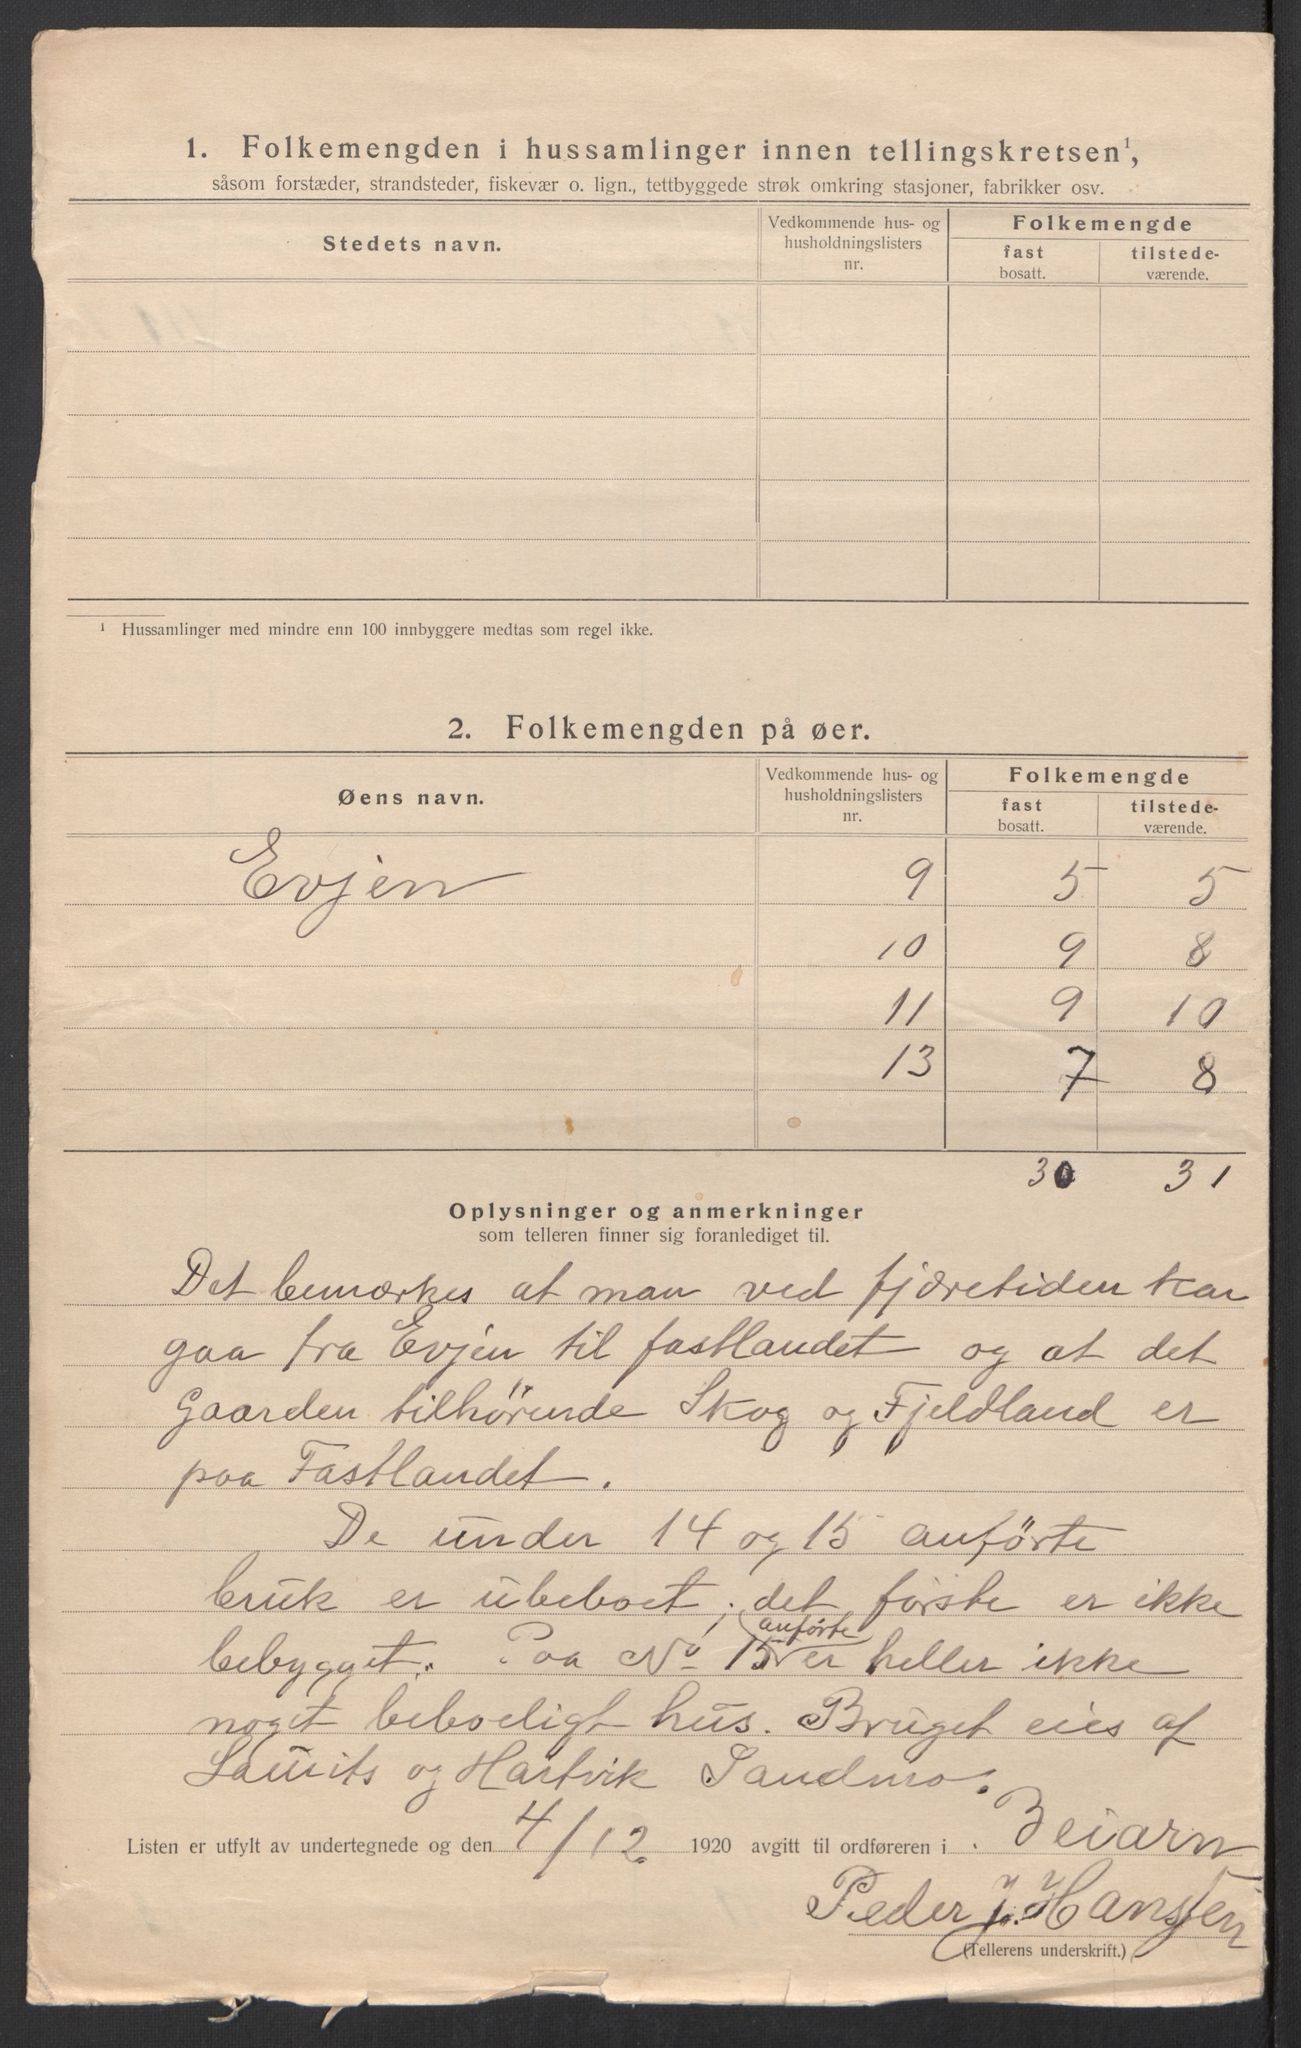 1. Folkemengden i hussamlinger innen tellingskretsen¹,
såsom forstæder, strandsteder, fiskevær o. lign., tettbyggede strøk omkring stasjoner, fabrikker osv.
Stedets navn. Vedkommende hus- og husholdningslisters nr. Folkemengde
fast bosatt. tilstede-værende.
¹ Hussamlinger med mindre enn 100 innbyggere medtas som regel ikke.
2. Folkemengden på øer.
Øens navn. Vedkommende hus- og husholdningslisters nr. Folkemengde
fast bosatt. tilstede-værende.
Evjen 9 5 5
10 9 8
11 9 10
13 7 8
30 31
Oplysninger og anmerkninger
som telleren finner sig foranlediget til.
Det bemærkes at man ved fjæretiden kan
gaa fra Evjen til fastlandet og at det
Gaarden tilhörende Skog og Fjeldland er
paa Fastlandet.
De under 14 og 15 anförte
bruk er ubeboet, det første er ikke
bebygget. Paa No 15 anförte er heller ikke
noget beboeligt hus. Bruget eies af
Laurits og Hartvik Sandmo.
Listen er utfylt av undertegnede og den 4/12 1920 avgitt til ordføreren i Beiarn
Peder J. Hanssen
(Tellerens underskrift.)